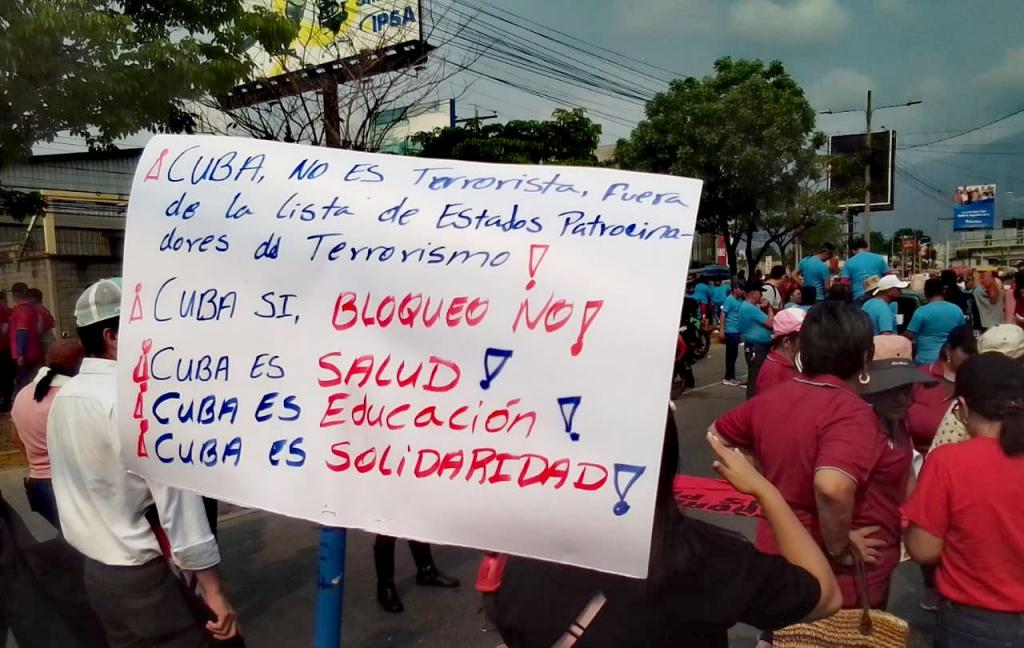 IPSA
¡CUBA, NO ES Terrorista, Fuera
de la Lista de Estados Patrocina-
dores del Terrorismo!
¡CUBA SI, BLOQUEO NO!
¡CUBA ES SALUD!
¡CUBA ES Educación!
¡CUBA ES SOLIDARIDAD!